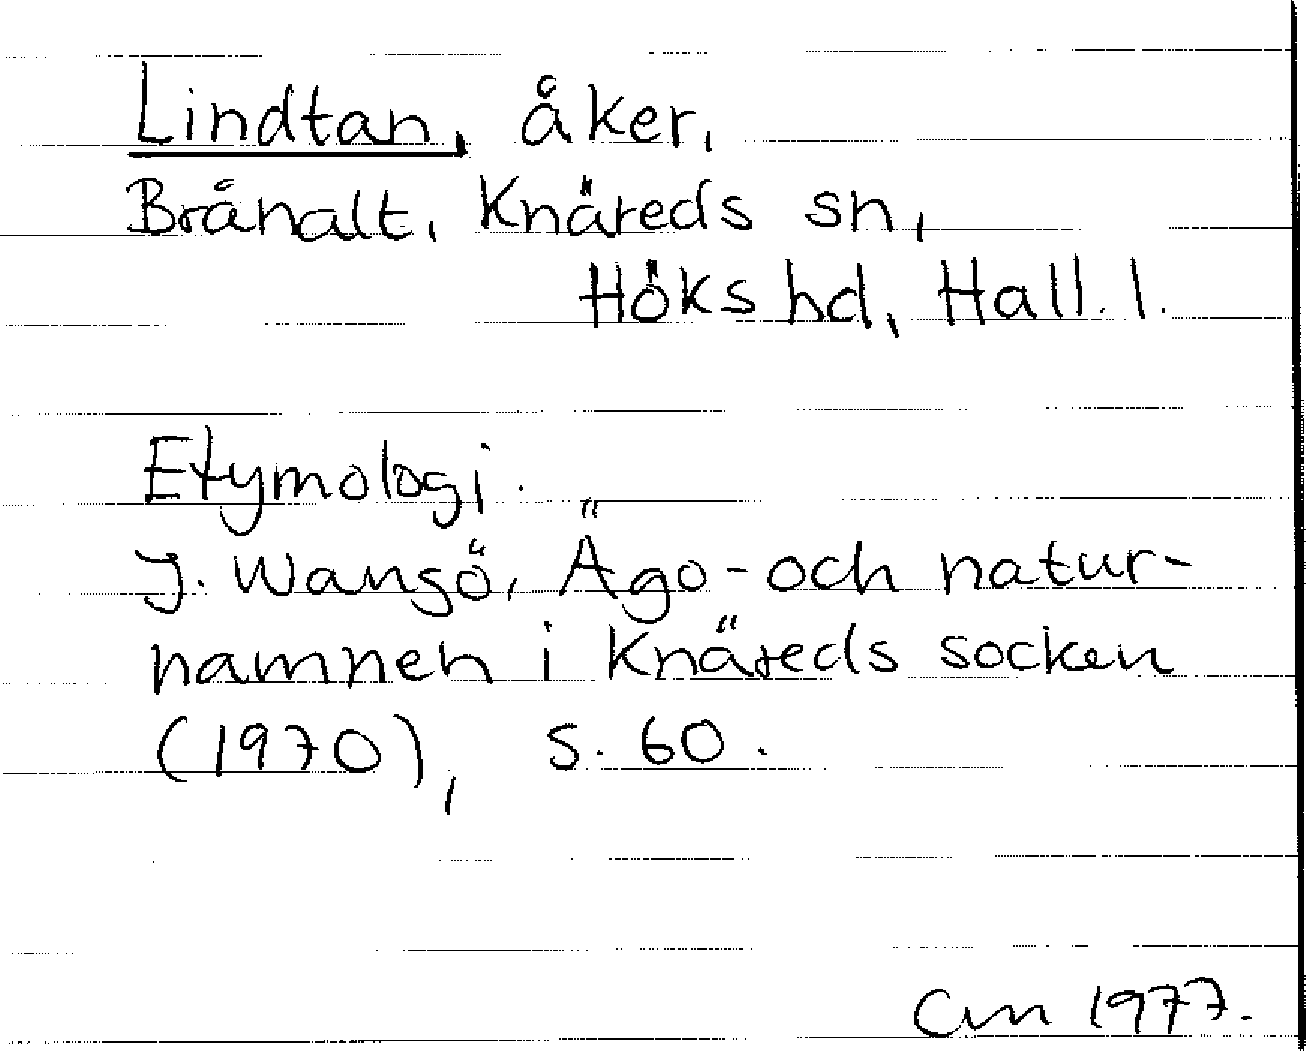 Lindtan, åker,
Brånalt, Knäreds sn,
Höks hd, Hall. l.
Etymologi.
J. Wangö, Ägo- och natur-
namnen i Knäreds socken
(1970), s. 60.
Cm 1977.